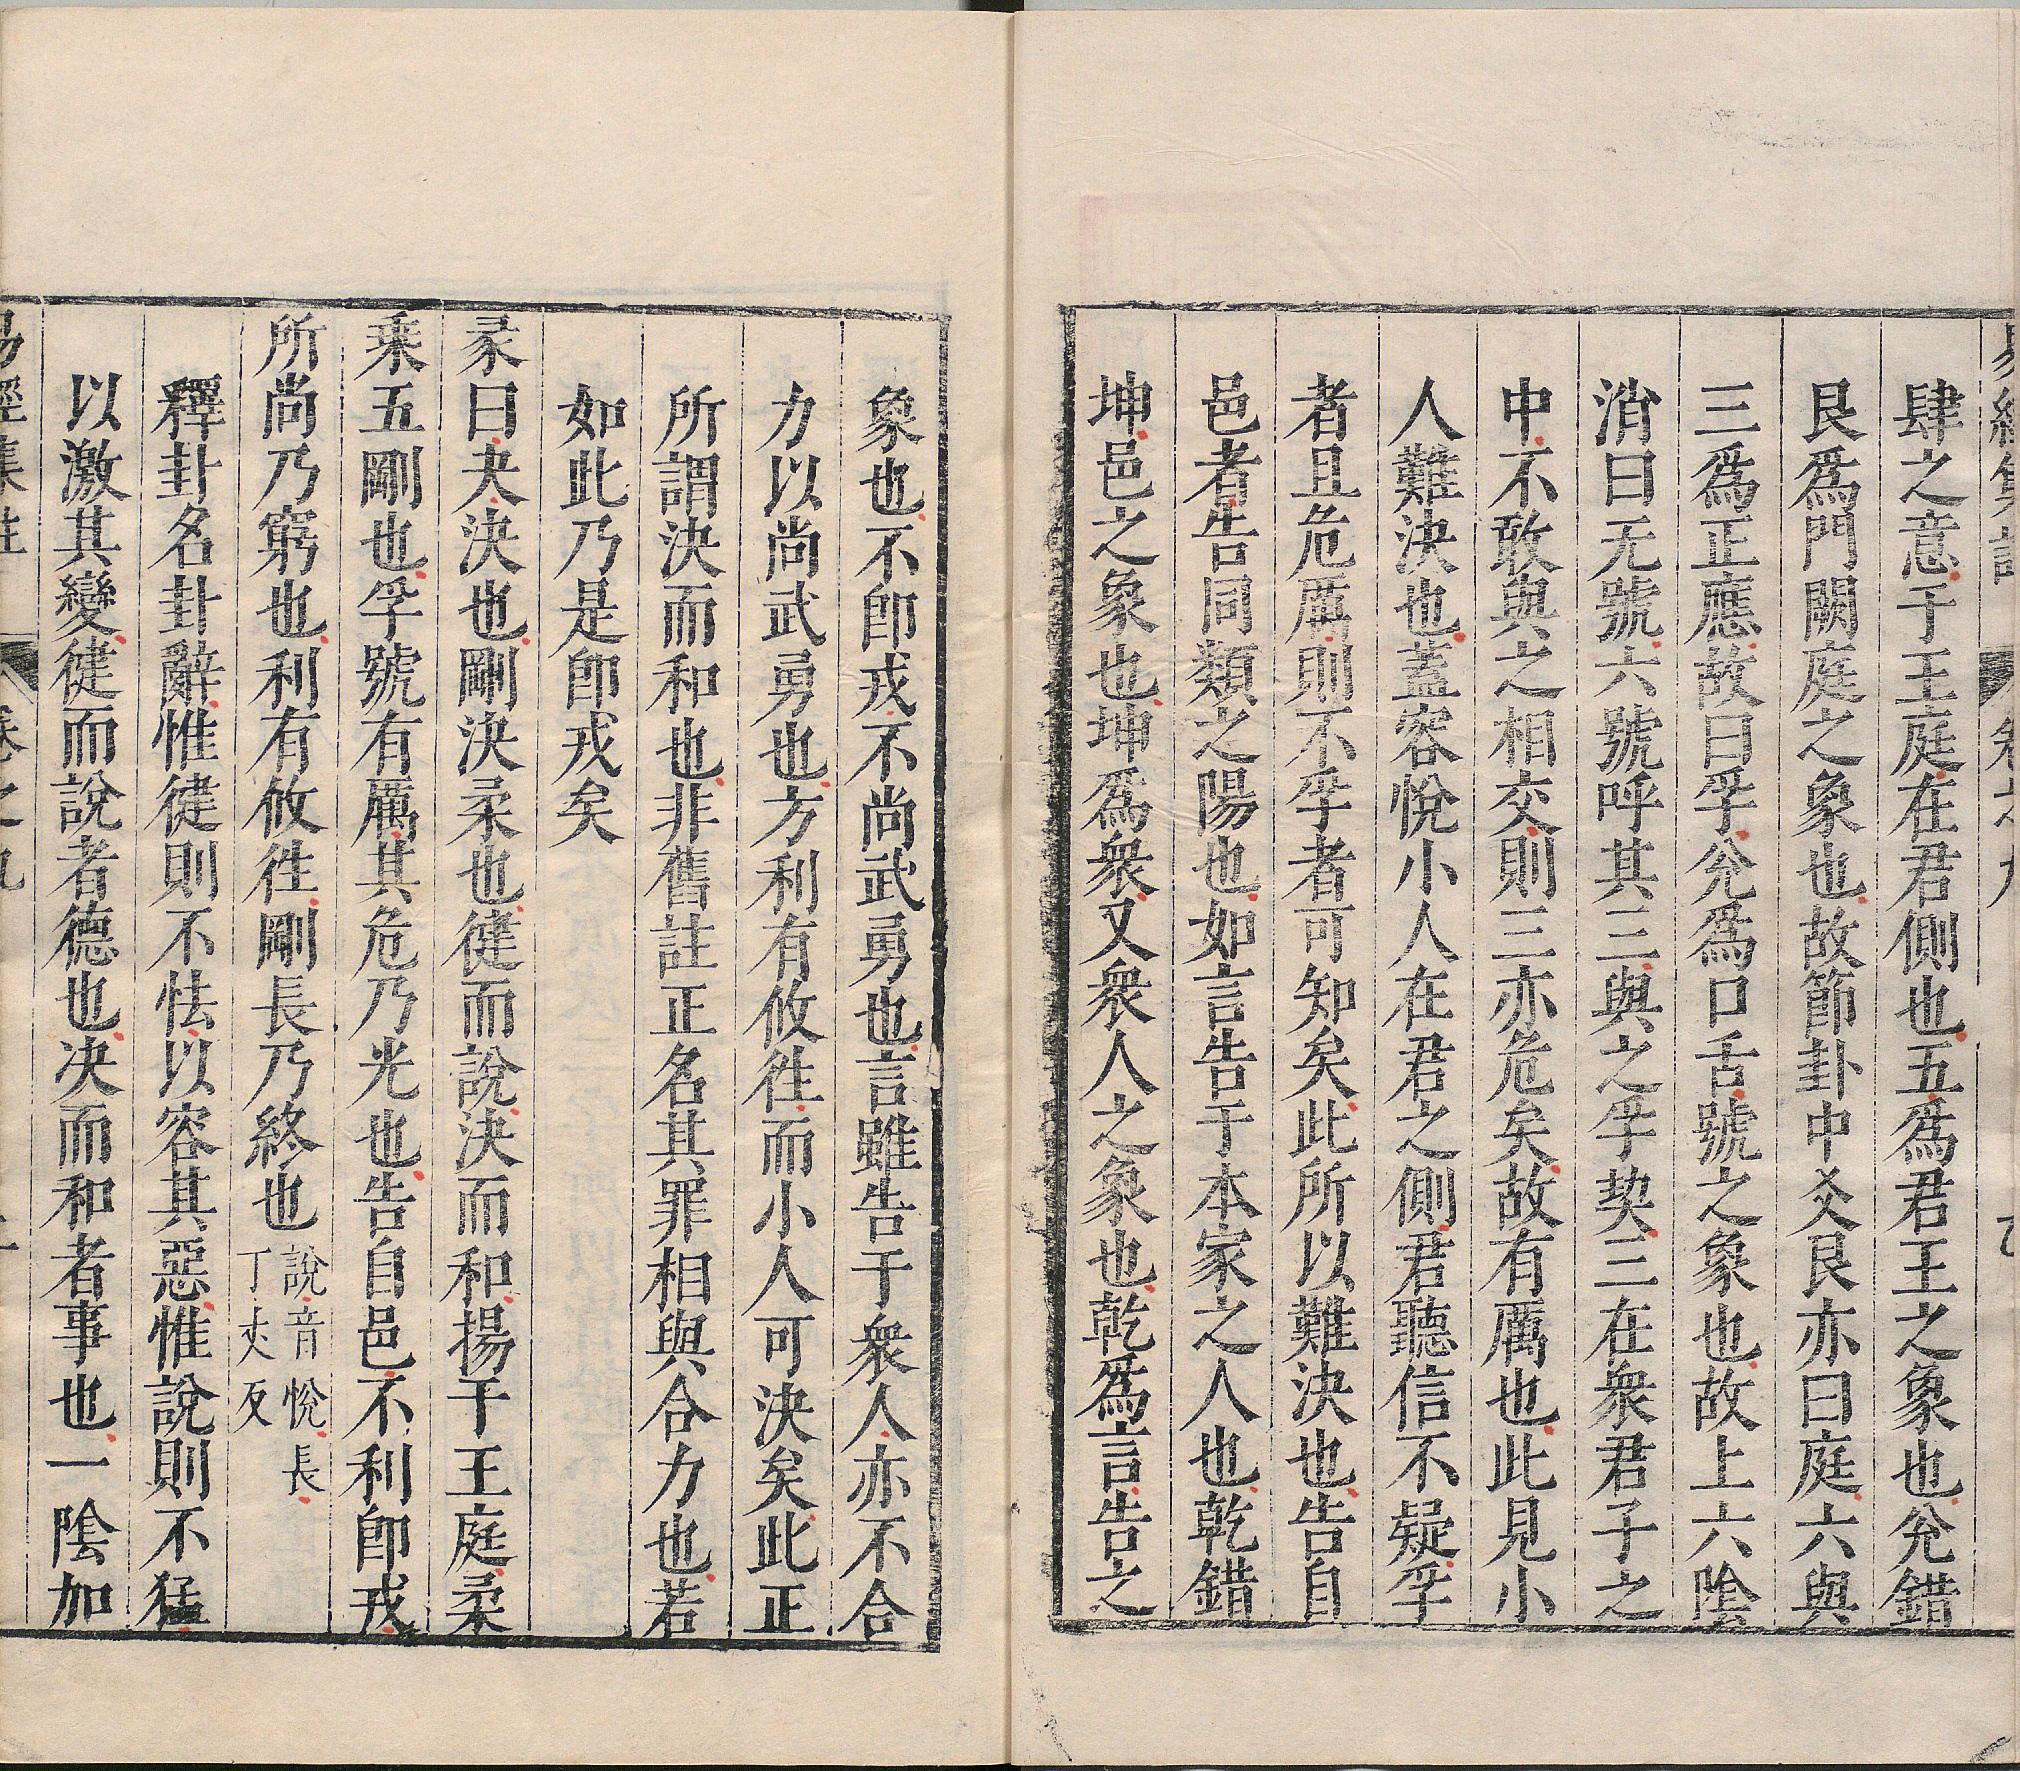 肆之意于王庭在君側也五爲君王之象也兊錯
艮爲門闕庭之象也故節卦中爻艮亦曰庭六與
三爲正應故曰孚兊爲口舌號之象也故上六陰
消曰无號六號呼其三與之孚契三在衆君子之
中不敢與之相交則三亦危矣故有厲也此見小
人難決也蓋容悅小人在君之側君聽信不疑孚
者且危厲則不孚者可知矣此所以難決也告自
邑者告同類之陽也如言告于本家之人也乾錯
坤邑之象也坤爲衆又衆人之象也乾爲言告之
象也不卽戎不尚武勇也言雖告于衆人亦不合
力以尚武勇也方利有攸徃而小人可決矣此正
所謂決而和也非舊註正名其罪相與合力也若
如此乃是卽戎矣
彖曰夬決也剛決柔也健而說決而和揚于王庭柔
乘五剛也孚號有厲其危乃光也告自邑不利卽戎
所尚乃窮也利有攸徃剛長乃終也
說音悅長
丁丈反
釋卦名卦辭惟健則不怯以容其惡惟說則不猛
以激其變健而說者德也决而和者事也一陰加
易經集註 卷之九